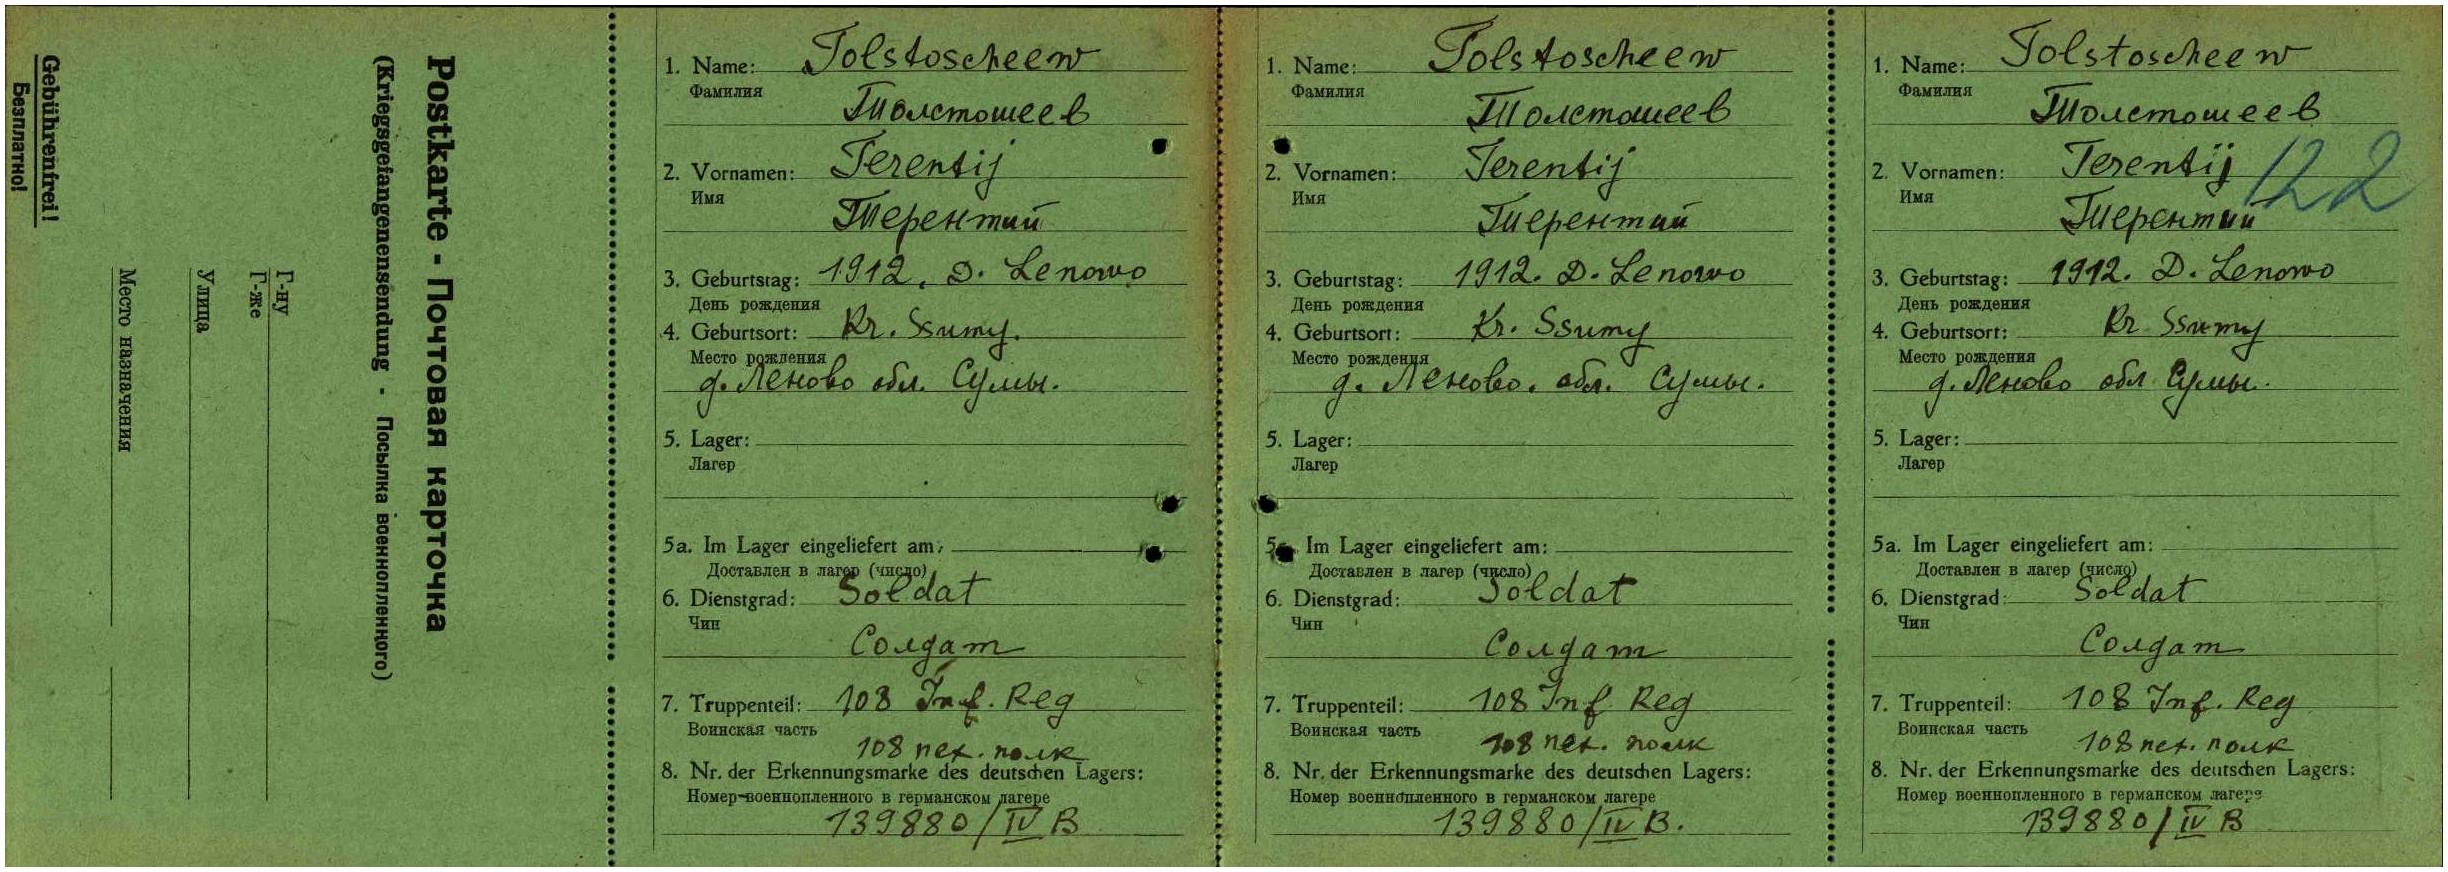 Gebührenfrei!
Безплатно!
Postkarte - Почтовая карточка
(Kriegsgefangenensendung - Посылка военнопленного)
Г-ну
Г-же
Улица
Место назначения
1. Name: Tolstoscheew
Фамилия
Толстошеев
2. Vornamen: Terentij
Имя
Терентий
3. Geburtstag: 1912. D. Lenowo
День рождения
4. Geburtsort: Kr. Ssumy.
Место рождения
д. Леново обл. Сумы.
5. Lager:
Лагер
5a. Im Lager eingeliefert am:
Доставлен в лагер (число)
6. Dienstgrad: Soldat
Чин
Солдат
7. Truppenteil: 108 Inf. Reg
Воинская часть
108 пех. полк
8. Nr. der Erkennungsmarke des deutschen Lagers:
Номер военнопленного в германском лагере
139880/IV B
1. Name: Tolstoscheew
Фамилия
Толстошеев
2. Vornamen: Terentij
Имя
Терентий
3. Geburtstag: 1912. D. Lenowo
День рождения
4. Geburtsort: Kr. Ssumy
Место рождения
д. Леново. обл. Сумы.
5. Lager:
Лагер
5a. Im Lager eingeliefert am:
Доставлен в лагер (число)
6. Dienstgrad: Soldat
Чин
Солдат
7. Truppenteil: 108 Inf Reg
Воинская часть
108 пех. полк
8. Nr. der Erkennungsmarke des deutschen Lagers:
Номер военнопленного в германском лагере
139880/IV B.
1. Name: Tolstoscheew
Фамилия
Толстошеев
2. Vornamen: Terentij
122
Имя
Терентий
3. Geburtstag: 1912. D. Lenowo
День рождения
4. Geburtsort: Kr Ssumy
Место рождения
д. Леново обл Сумы.
5. Lager:
Лагер
5a. Im Lager eingeliefert am:
Доставлен в лагер (число)
6. Dienstgrad: Soldat
Чин
Солдат
7. Truppenteil: 108 Inf. Reg
Воинская часть
108 пех. полк
8. Nr. der Erkennungsmarke des deutschen Lagers:
Номер военнопленного в германском лагере
139880/IV B